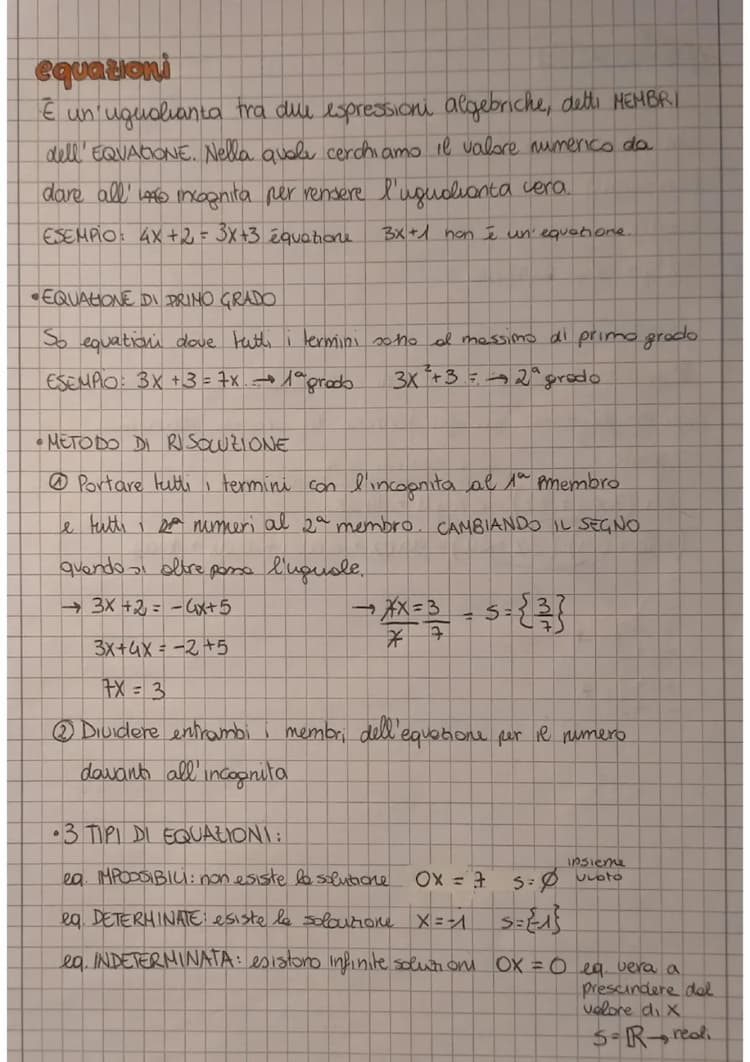 equazioni
È un'uguaglianza tra due espressioni algebriche, detti MEMBRI
dell'EQUAZIONE. Nella quale cerchiamo il valore numerico da
dare all' incognita per rendere l'uguaglianza vera.
ESEMPIO: 4x+2=3x+3 equazione 3x+1 non è un'equazione.
•EQUAZIONE DI PRIMO GRADO
So equazioni dove tutti i termini sono al massimo di primo grado
ESEMPIO: 3x+3=7x → 1ª grado 3x²+3= → 2ª grado
•METODO DI RISOLUZIONE
① Portare tutti i termini con l'incognita al 1ª membro
e tutti i numeri al 2ª membro. CAMBIANDO IL SEGNO
quando si oltre passa l'uguale.
→ 3x+2=-4x+5 → 7x/7=3/7 = S={3/7}
3x+4x=-2+5
7x=3
② Dividere entrambi i membri dell'equazione per il numero
davanti all'incognita
•3 TIPI DI EQUAZIONI:
eq. IMPOSSIBILI: non esiste la soluzione 0x=7 S=∅ insieme vuoto
eq. DETERMINATE: esiste la soluzione x=-1 S={-1}
eq. INDETERMINATA: esistono infinite soluzioni 0x=0 eq. vera a
prescindere dal
valore di x
S=ℝ→reali